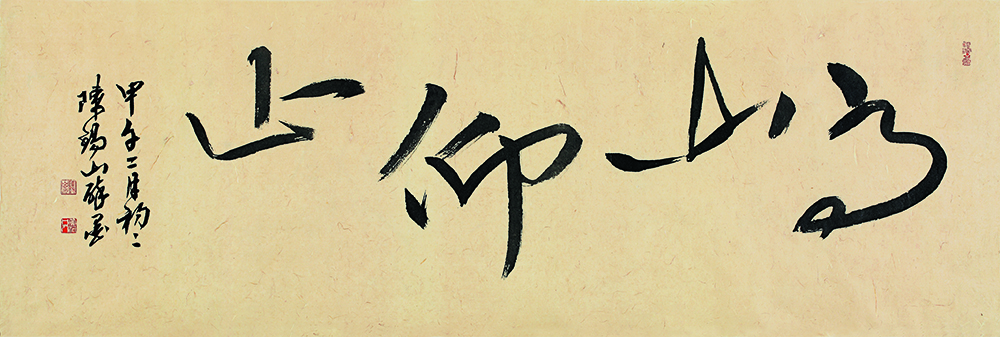 高山仰止
甲午二月初二
陈锡山醉墨